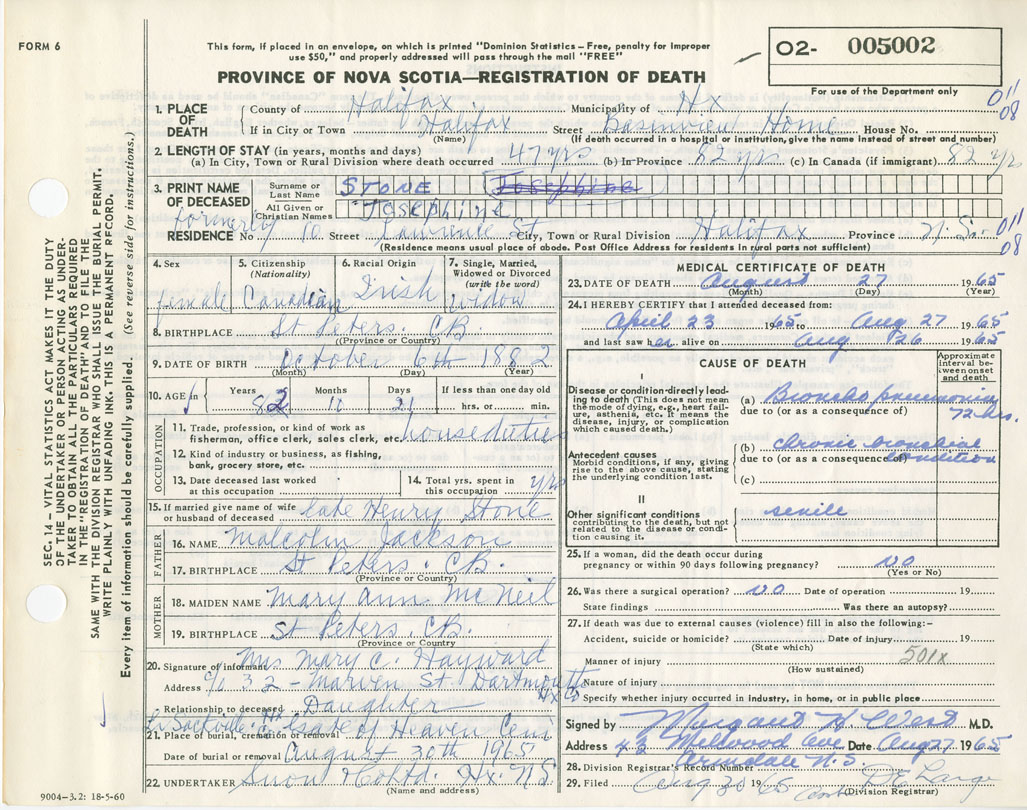 FORM 6
This form, if placed in an envelope, on which is printed "Dominion Statistics – Free, penalty for improper
use $50," and properly addressed will pass through the mail "FREE"
PROVINCE OF NOVA SCOTIA—REGISTRATION OF DEATH
O2- 005002
For use of the Department only
011
08
1. PLACE OF DEATH
County of Halifax Municipality of Hx
If in City or Town Halifax Street Basinview Home House No.
(Name) (If death occurred in a hospital or institution, give the name instead of street and number)
2. LENGTH OF STAY (in years, months and days)
(a) In City, Town or Rural Division where death occurred 47 yrs (b) In Province 82 yrs (c) In Canada (if immigrant) 82 yrs
3. PRINT NAME OF DECEASED
Surname or Last Name STONE Josephine
All Given or Christian Names JOSEPHINE
formerly
RESIDENCE No 10 Street Lawrence St City, Town or Rural Division Halifax Province N.S. 011
08
(Residence means usual place of abode. Post Office Address for residents in rural parts not sufficient)
4. Sex female
5. Citizenship (Nationality) Canadian
6. Racial Origin Irish
7. Single, Married, Widowed or Divorced (write the word) widow
8. BIRTHPLACE St Peters. C.B.
(Province or Country)
9. DATE OF BIRTH October 6th 1882
(Month) (Day) (Year)
10. AGE in Years 82 Months 10 Days 21 If less than one day old hrs. or min.
OCCUPATION
11. Trade, profession, or kind of work as
fisherman, office clerk, sales clerk, etc. house duties
12. Kind of industry or business, as fishing,
bank, grocery store, etc.
13. Date deceased last worked
at this occupation
14. Total yrs. spent in
this occupation yrs
15. If married give name of wife
or husband of deceased late Henry Stone
FATHER
16. NAME Malcolm Jackson
17. BIRTHPLACE St Peters. C.B.
(Province or Country)
MOTHER
18. MAIDEN NAME Mary Ann McNeil
19. BIRTHPLACE St Peters. C.B.
(Province or Country)
20. Signature of informant Mrs Mary C. Hayward
Address c/o 32 - Marven St. Dartmouth
Hx Co
Relationship to deceased Daughter
Lr Sackville Hx
21. Place of burial, cremation or removal Gate of Heaven Cem
Date of burial or removal August 30th 1965
22. UNDERTAKER Snow & Co Ltd. Hx. N.S.
(Name and address)
MEDICAL CERTIFICATE OF DEATH
23. DATE OF DEATH August 27 1965
(Month) (Day) (Year)
24. I HEREBY CERTIFY that I attended deceased from:
April 23 1965 to Aug 27 1965
and last saw her alive on Aug 26 1965
CAUSE OF DEATH
Approximate interval between onset and death
I
Disease or condition directly leading to death (This does not mean
the mode of dying, e.g., heart failure, asthenia, etc. It means the
disease, injury, or complication
which caused death.)
(a) Broncho pneumonia
due to (or as a consequence of) 72 hrs.
Antecedent causes
Morbid conditions, if any, giving
rise to the above cause, stating
the underlying condition last.
(b) Chronic bronchial
due to (or as a consequence of) condition
(c)
II
Other significant conditions
contributing to the death, but not
related to the disease or condition causing it.
senile
25. If a woman, did the death occur during
pregnancy or within 90 days following pregnancy? NO
(Yes or No)
26. Was there a surgical operation? NO Date of operation 19
State findings Was there an autopsy?
27. If death was due to external causes (violence) fill in also the following:-
Accident, suicide or homicide? Date of injury 19
(State which)
Manner of injury 501x
(How sustained)
Nature of injury
Specify whether injury occurred in industry, in home, or in public place
Signed by Margaret West M.D.
Address Melwood Ave Date Aug 27 1965
Armdale N.S
28. Division Registrar's Record Number
29. Filed Aug 30 1965
(Division Registrar)
SEC. 14 – VITAL STATISTICS ACT MAKES IT THE DUTY
OF THE UNDERTAKER OR PERSON ACTING AS UNDER-
TAKER TO OBTAIN ALL THE PARTICULARS REQUIRED
IN THE "REGISTRATION OF DEATH" AND TO FILE THE
SAME WITH THE DIVISION REGISTRAR WHO SHALL ISSUE THE BURIAL PERMIT.
WRITE PLAINLY WITH UNFADING INK. THIS IS A PERMANENT RECORD.
Every item of information should be carefully supplied. (See reverse side for instructions.)
9004–3.2: 18-5-60